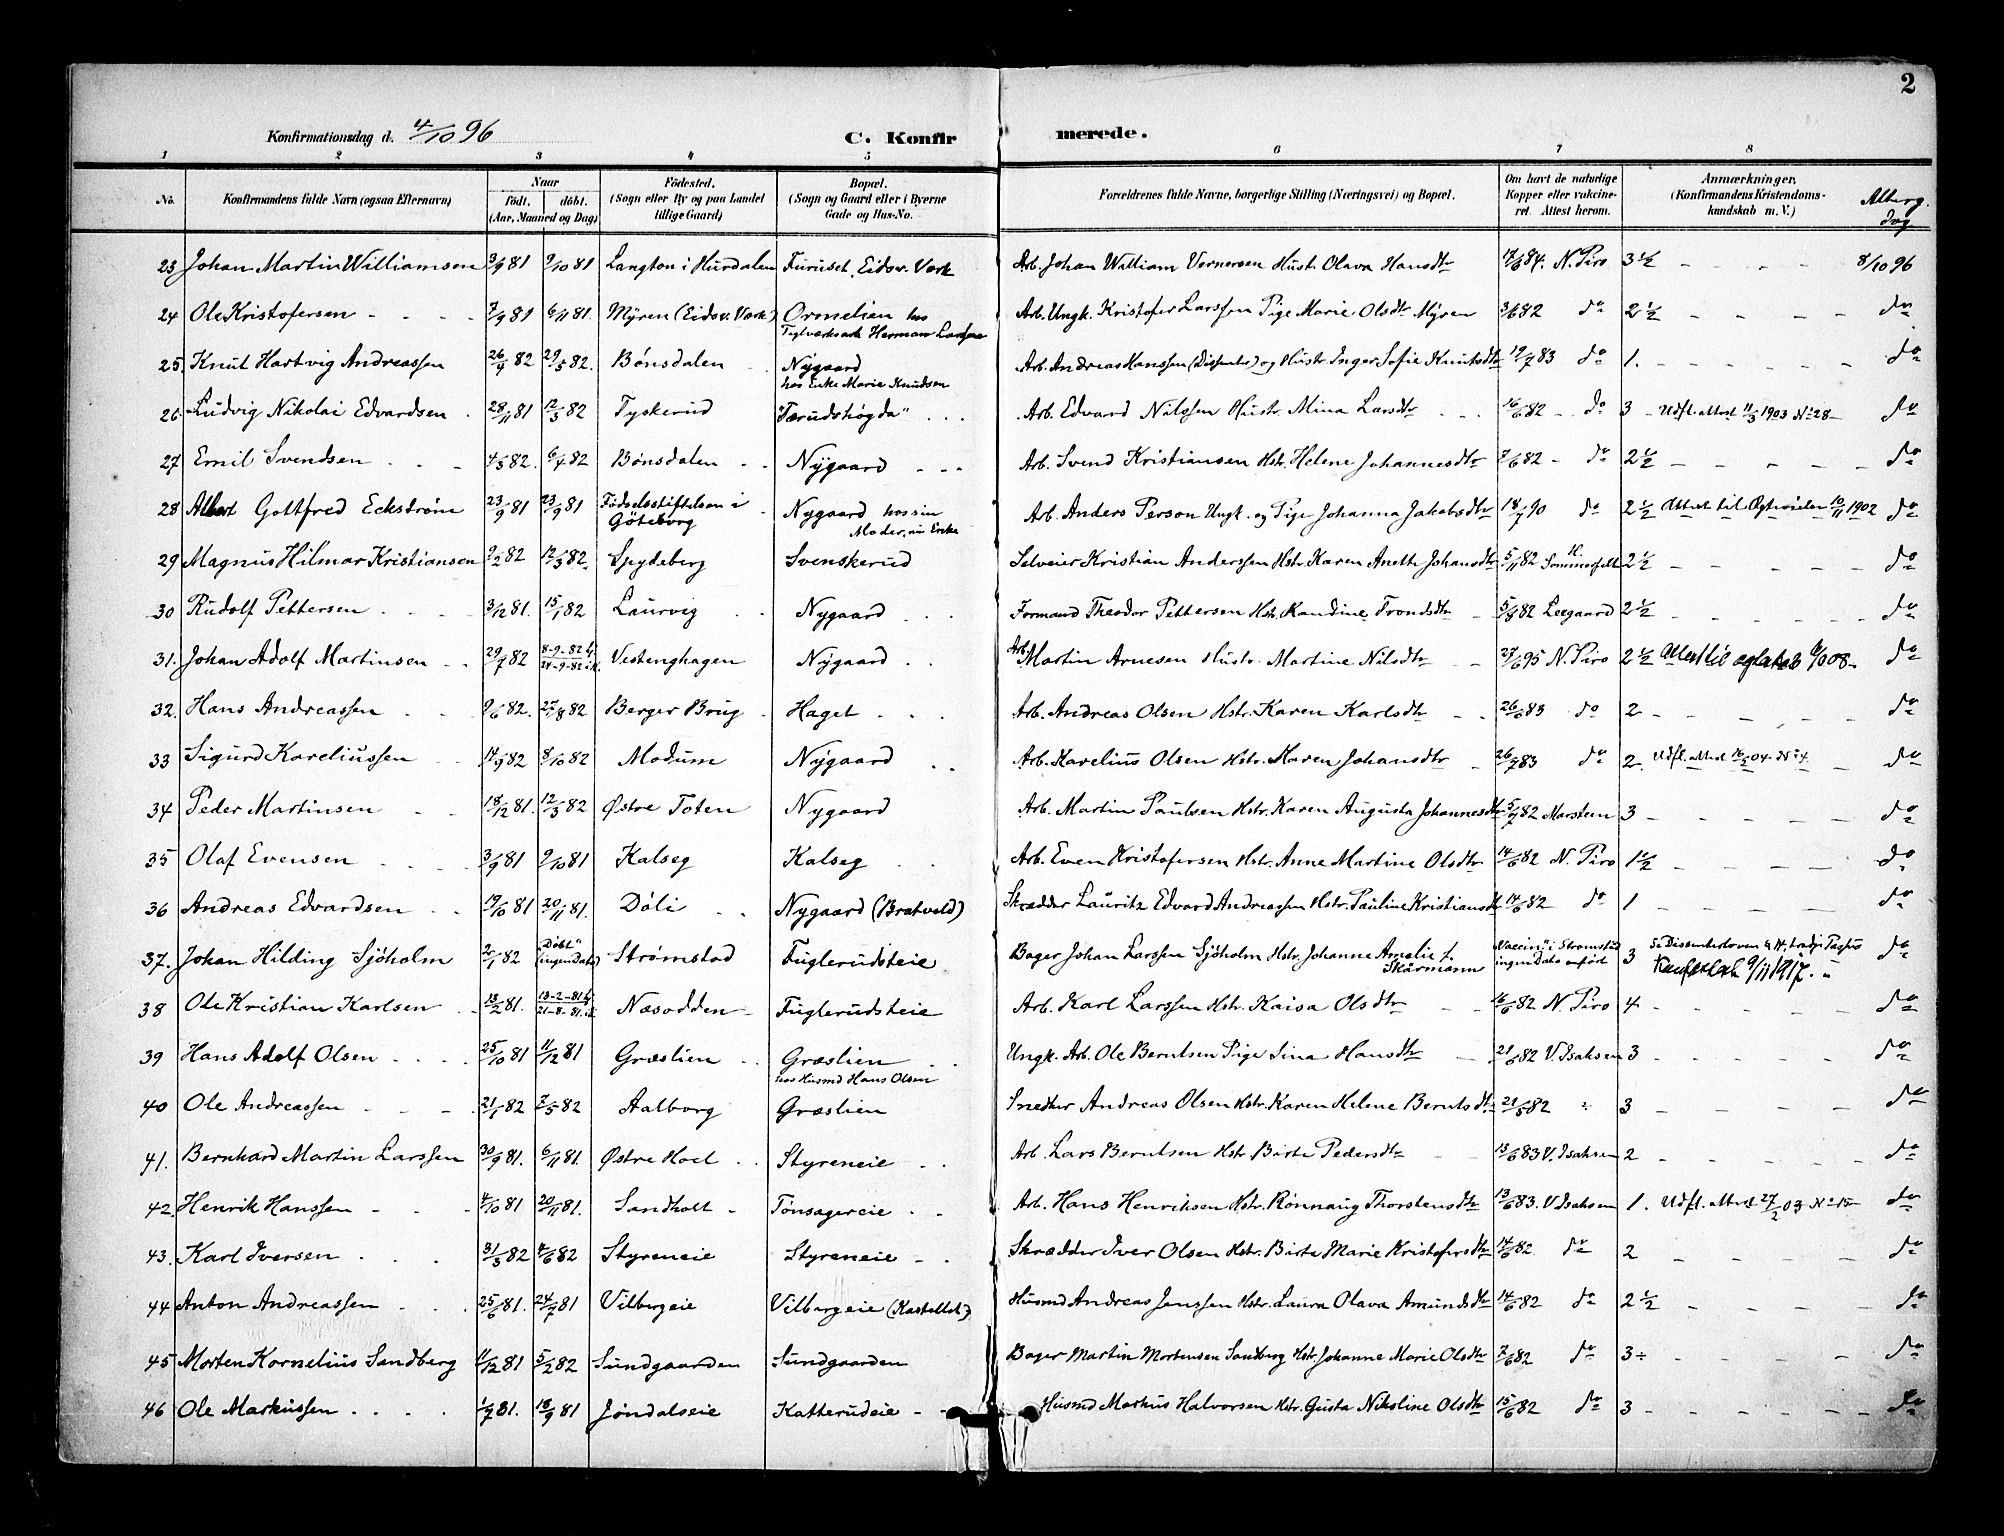 2
Konfirmationsdag d. 4/10 96 C. Konfirmerede.
1 2 3 4 5 6 7 8
No. Konfirmandens fulde Navn (ogsaa Efternavn) Naar født. døbt. (Aar, Maaned og Dag) Fødested. (Sogn eller By og paa Landet tillige Gaard) Bopæl. (Sogn og Gaard eller i Byerne Gade og Hus-No. Forældrenes fulde Navne, borgerlige Stilling (Næringsvei) og Bopæl. Om havt de naturlige Kopper eller vaccineret. Attest herom. Anmærkninger, (Konfirmandens Kristendomskundskab m. V.) Altergdag
23 Johan Martin Williamsen 3/9 81 9/10 81 Langton i Hurdalen Furuset, Eidsv. Værk Arb. Johan William Vernersen Hustr. Olava Hansdtr 17/6 84. N. Piro 3 1/2 8/10 96
24 Ole Kristofersen 7/9 81 6/11 81. Myren (Eidsv. Værk) Ornelien hos Teglværksarb. Herman Larsen Arb. Ungk. Kristofer Larssen Pige Marie Olsdtr Myren 3/6 82 do 2 1/2 do
25 Knut Hartvig Andreassen 26/4 82 29/5 82. Bønsdalen Nygaard hos Enke Marie Knudsen Arb. Andreas Hanssen (Dissenter) og Hustr. Inger Sofie Knutsdtr 19/7 83 do 1. do
26 Ludvig Nikolai Edvardsen 28/11 81 12/3 82 Tyskerud "Tærudshøgda" Arb. Edvard Nilssen Hustr. Mina Larsdtr 16/6 82 do 3 Udfl. attest 11/3 1903 No 28 do
27 Emil Svendsen 4/3 82. 6/4 82 Bønsdalen Nygaard Arb. Svend Kristiansen Hstr. Helene Johannesdtr 7/6 82 do 2 1/2 do
28 Albert Gottfred Eckstrøm 23/9 81 23/9 81 Fødselsstiftelsen i Göteborg Nygaard hos sin Moder, nu Enke Arb. Anders Person Ungk. og Pige Johanna Jakobsdtr 18/7 90 do 2 1/2 Attest til 10/11 1902 do
29 Magnus Hilmar Kristiansen 9/2 82 12/3 82. Spydeberg Svenskerud Selveier Kristian Anderssen Hstr. Karen Anette Johansdtr 5/11 82 H. Sommerfelt 2 1/2 do
30 Rudolf Pettersen 3/12 81. 15/1 82 Laurvig Nygaard Formand Theodor Pettersen Hstr. Randine Trondsdtr 5/8 82 Leegaard 2 1/2 do
31. Johan Adolf Martinsen 29/7 82 8-9-82 hj. 24-9-82 i K. Vestenghagen Nygaard Arb. Martin Arnesen Hustr. Martine Nilsdtr 27/6 95 N. Piro 2 1/2 Attest til do
32. Hans Andreassen 9/6 82. 27/8 82 Berger Brug Haget Arb. Andreas Olsen Hstr. Karen Karlsdtr 26/6 83 do 2 do
33 Sigurd Kareliussen 14/9 82 8/10 82 Modum Nygaard Arb. Karelius Olsen Hstr. Maren Johansdtr 26/7 83 do 2. Udfl. attest 16/5 04. No 4 do
34 Peder Martinsen 18/12 81. 12/3 82 Østre Toten Nygaard Arb. Martin Paulsen Hstr. Karen Augusta Johannesdtr 5/7 82 Marstein 3 do
35 Olaf Evensen 3/9 81 9/10 81 Kalseg Kalseg Arb. Even Kristofersen Hstr. Anne Martine Olsdtr 14/6 82 N. Piro 1 1/2 do
36 Andreas Edvardsen 19/10 81 20/11 81. Døli Nygaard (Bratvold) Skrædder Lauritz Edvard Andreassen Hstr. Pauline Kristiansdtr 14/6 82 do 1 do
37. Johan Hilding Sjöholm 2/1 82 "Døbt" (ingen Dato) Strømstad Fuglerudsteie Bager Johan Larssen Sjöholm Hstr. Johanne Amalie f. Skärmann "Vaccin" i Strømstad ingen Dato anført 3 9/11 1917. do
38 Ole Kristian Karlsen 13/2 81. 13-2-81 hj. 21-8-81. i K. Næsodden Fuglerudsteie Arb. Karl Larssen Hstr. Kaisa Olsdtr 16/6 82 N. Piro 4 do
39 Hans Adolf Olsen 25/10 81 11/12 81 Græslien Græslien hos Husmd Hans Olsen Ungk. Arb. Ole Berntsen Pige Lina Hansdtr 21/6 82 V. Isaksen 3 do
40 Ole Andreassen 21/1 82 7/5 82 Aalborg Græslien Snedker Andreas Olsen Hstr. Karen Helene Berntsdtr 21/5 82 " 3 do
41. Bernhard Martin Larssen 30/9 81. 6/11 81. Østre Hoel Styreneie Arb. Lars Berntsen Hstr. Birte Pedersdtr 13/6 83 V. Isaksen 2 do
42 Henrik Hanssen 4/10 81 20/11 81. Sandholt Tønsagereie Arb. Hans Henriksen Hstr. Rønnaug Thorstensdtr 13/6 83. V. Isaksen 1. Udfl. attest 27/2 03 No 15 do
43. Karl Iversen 31/3 82 4/6 82 Styreneie Styreneie Skrædder Iver Olsen Hstr. Birte Marie Kristofersdtr 14/6 82 do 2 do
44 Anton Andreassen 25/6 81. 24/7 81 Vilbergeie Vilbergeie (Kastellet) Husmd Andreas Jenssen Hstr. Laura Olava Amundsdtr 14/6 82 do 2 1/2 do
45 Morten Kornelius Sandberg 11/12 81 5/2 82 Sundgaarden Sundgaarden Bager Martin Mortensen Sandberg Hstr. Johanne Marie Olsdtr 7/6 82 do 3 ÷ do
46 Ole Markussen 1/7 81. 18/9 81 Jøndalseie Katterudeie Husmd Markus Halvorsen Hstr. Gusta Nikoline Olsdtr 15/6 82 do 3 do